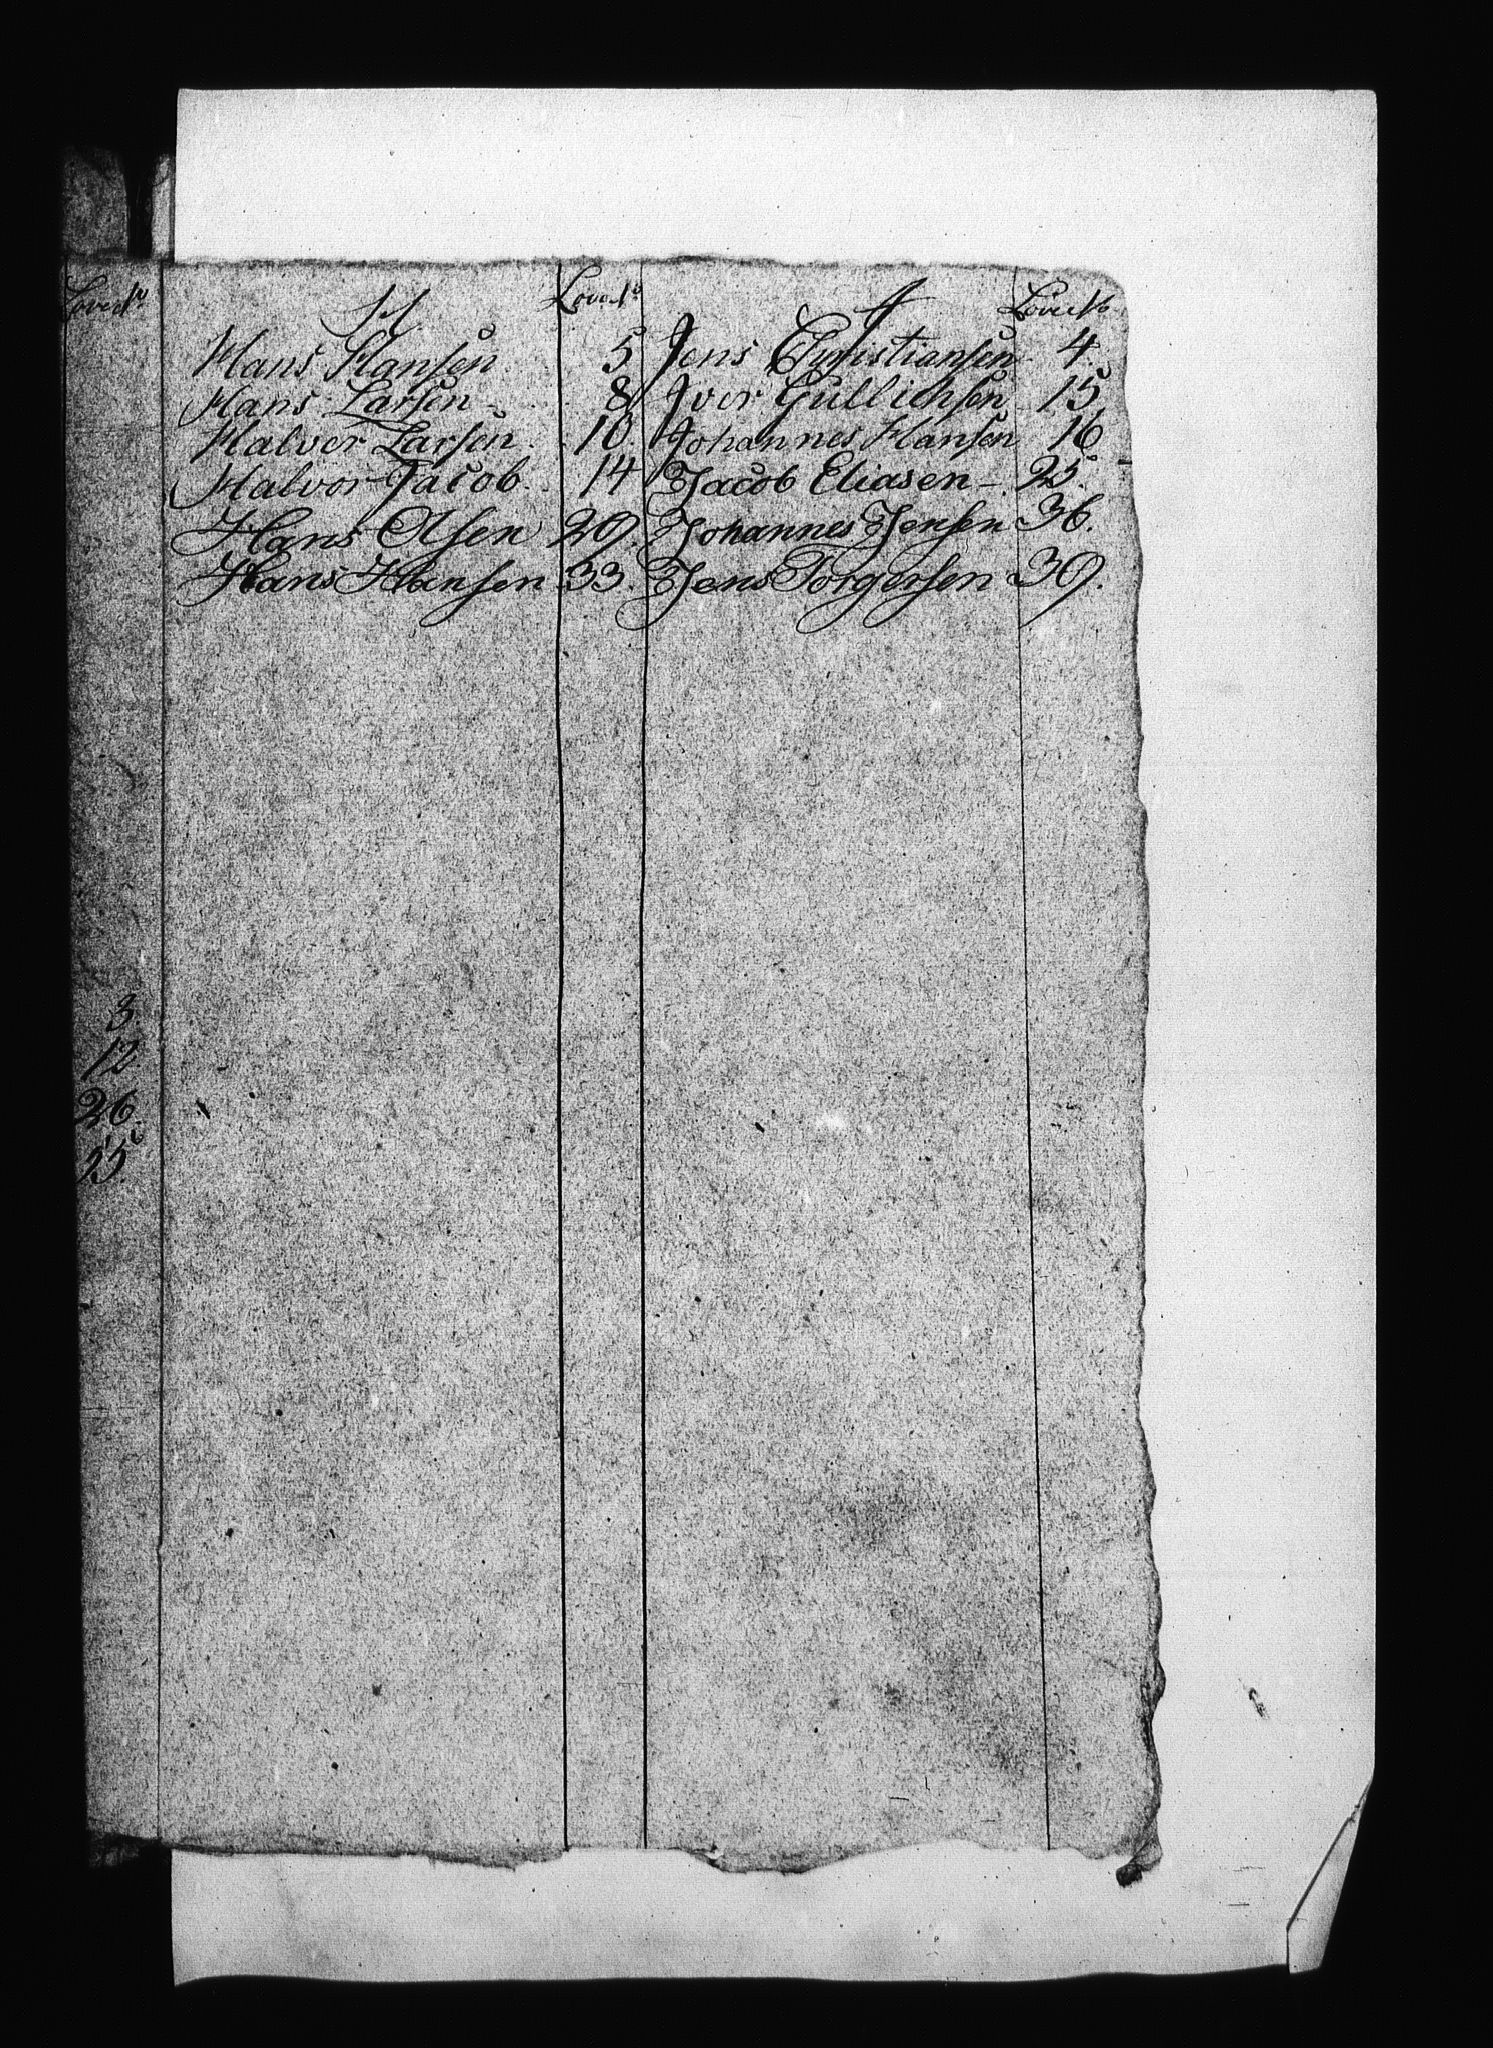 H. Love No
Hans Hansen 5
Hans Larsen - 8
Halver Larsen. 10.
Halvor Jacob. 14
Hans Olsen 29.
Hans Hansen 33.
J Love No
Jens Christiansen 4.
Iver Gullichsen 15
Johannes Hansen 16
Jacob Eliasen - 25.
Johannes Jensen 36.
Jens Torgersen 39.
Love No
3.
12
26.